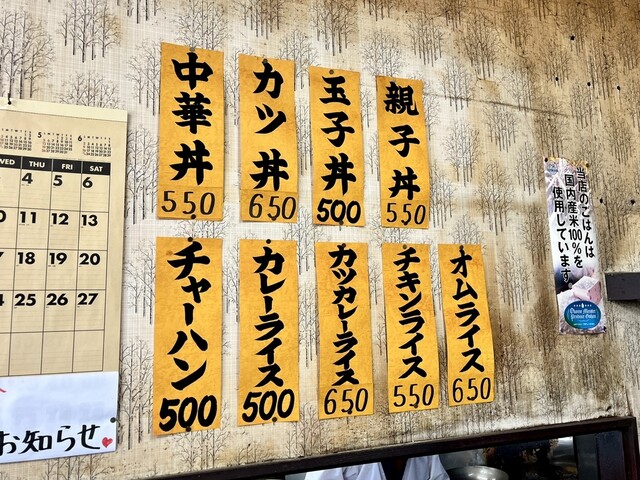 中華丼
550
カツ丼
650
玉子丼
500
親子丼
550
チャーハン
500
カレーライス
500
カツカレーライス
650
チキンライス
550
オムライス
650
当店のごはんは
国内産米100%を
使用しています。
5
6
WED THU FRI SAT
4 5 6
11 12 13
18 19 20
25 26 27
お知らせ♥